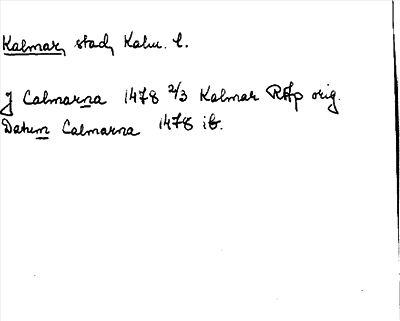 Kalmar, stad, Kalm. l.
J Calmarna 1478 2/3 Kalmar RAp orig.
Datum Calmarna 1478 ib.